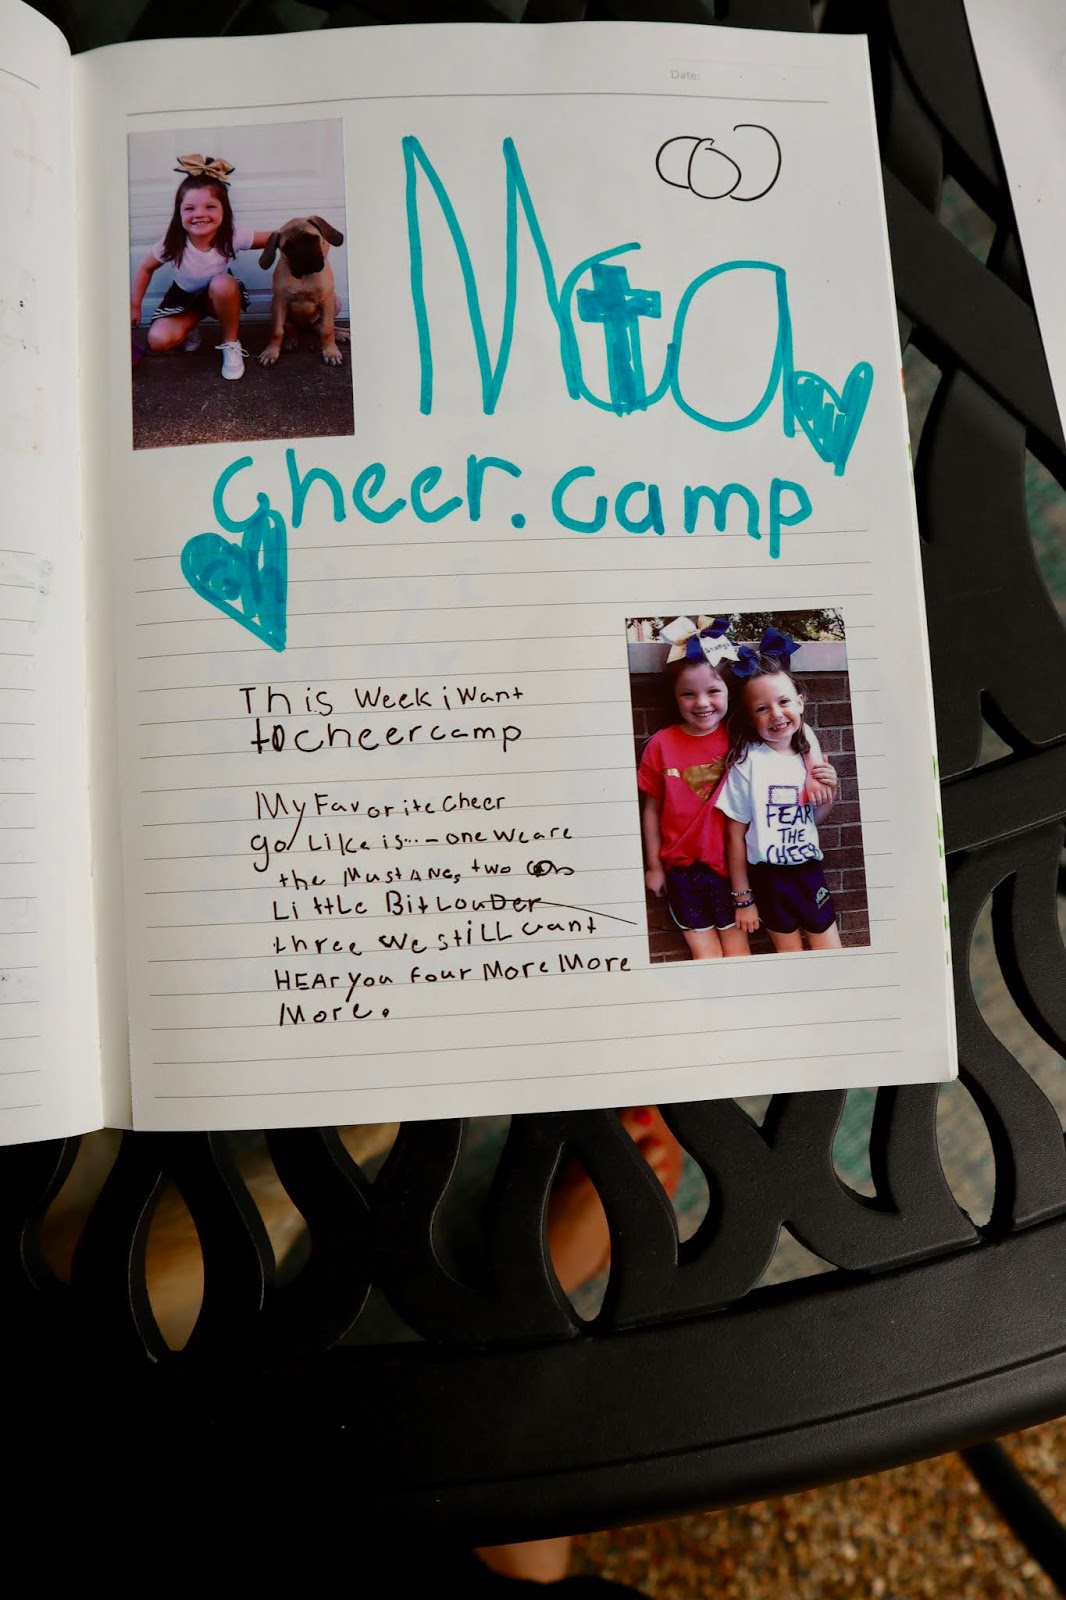 Date:
cheer.camp
This Week i Want
to cheer camp
My Favorite Cheer
go Like is...- one we are
the MustANg, two
Little Bit LouDer
three we stiLL cant
HEAr you four More More
More.
FEAR
THE
CHEER